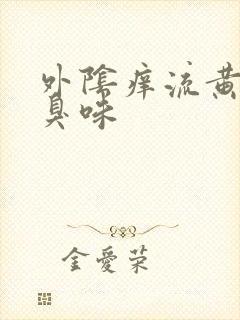 外陰痒流黄
臭味
金愛荣